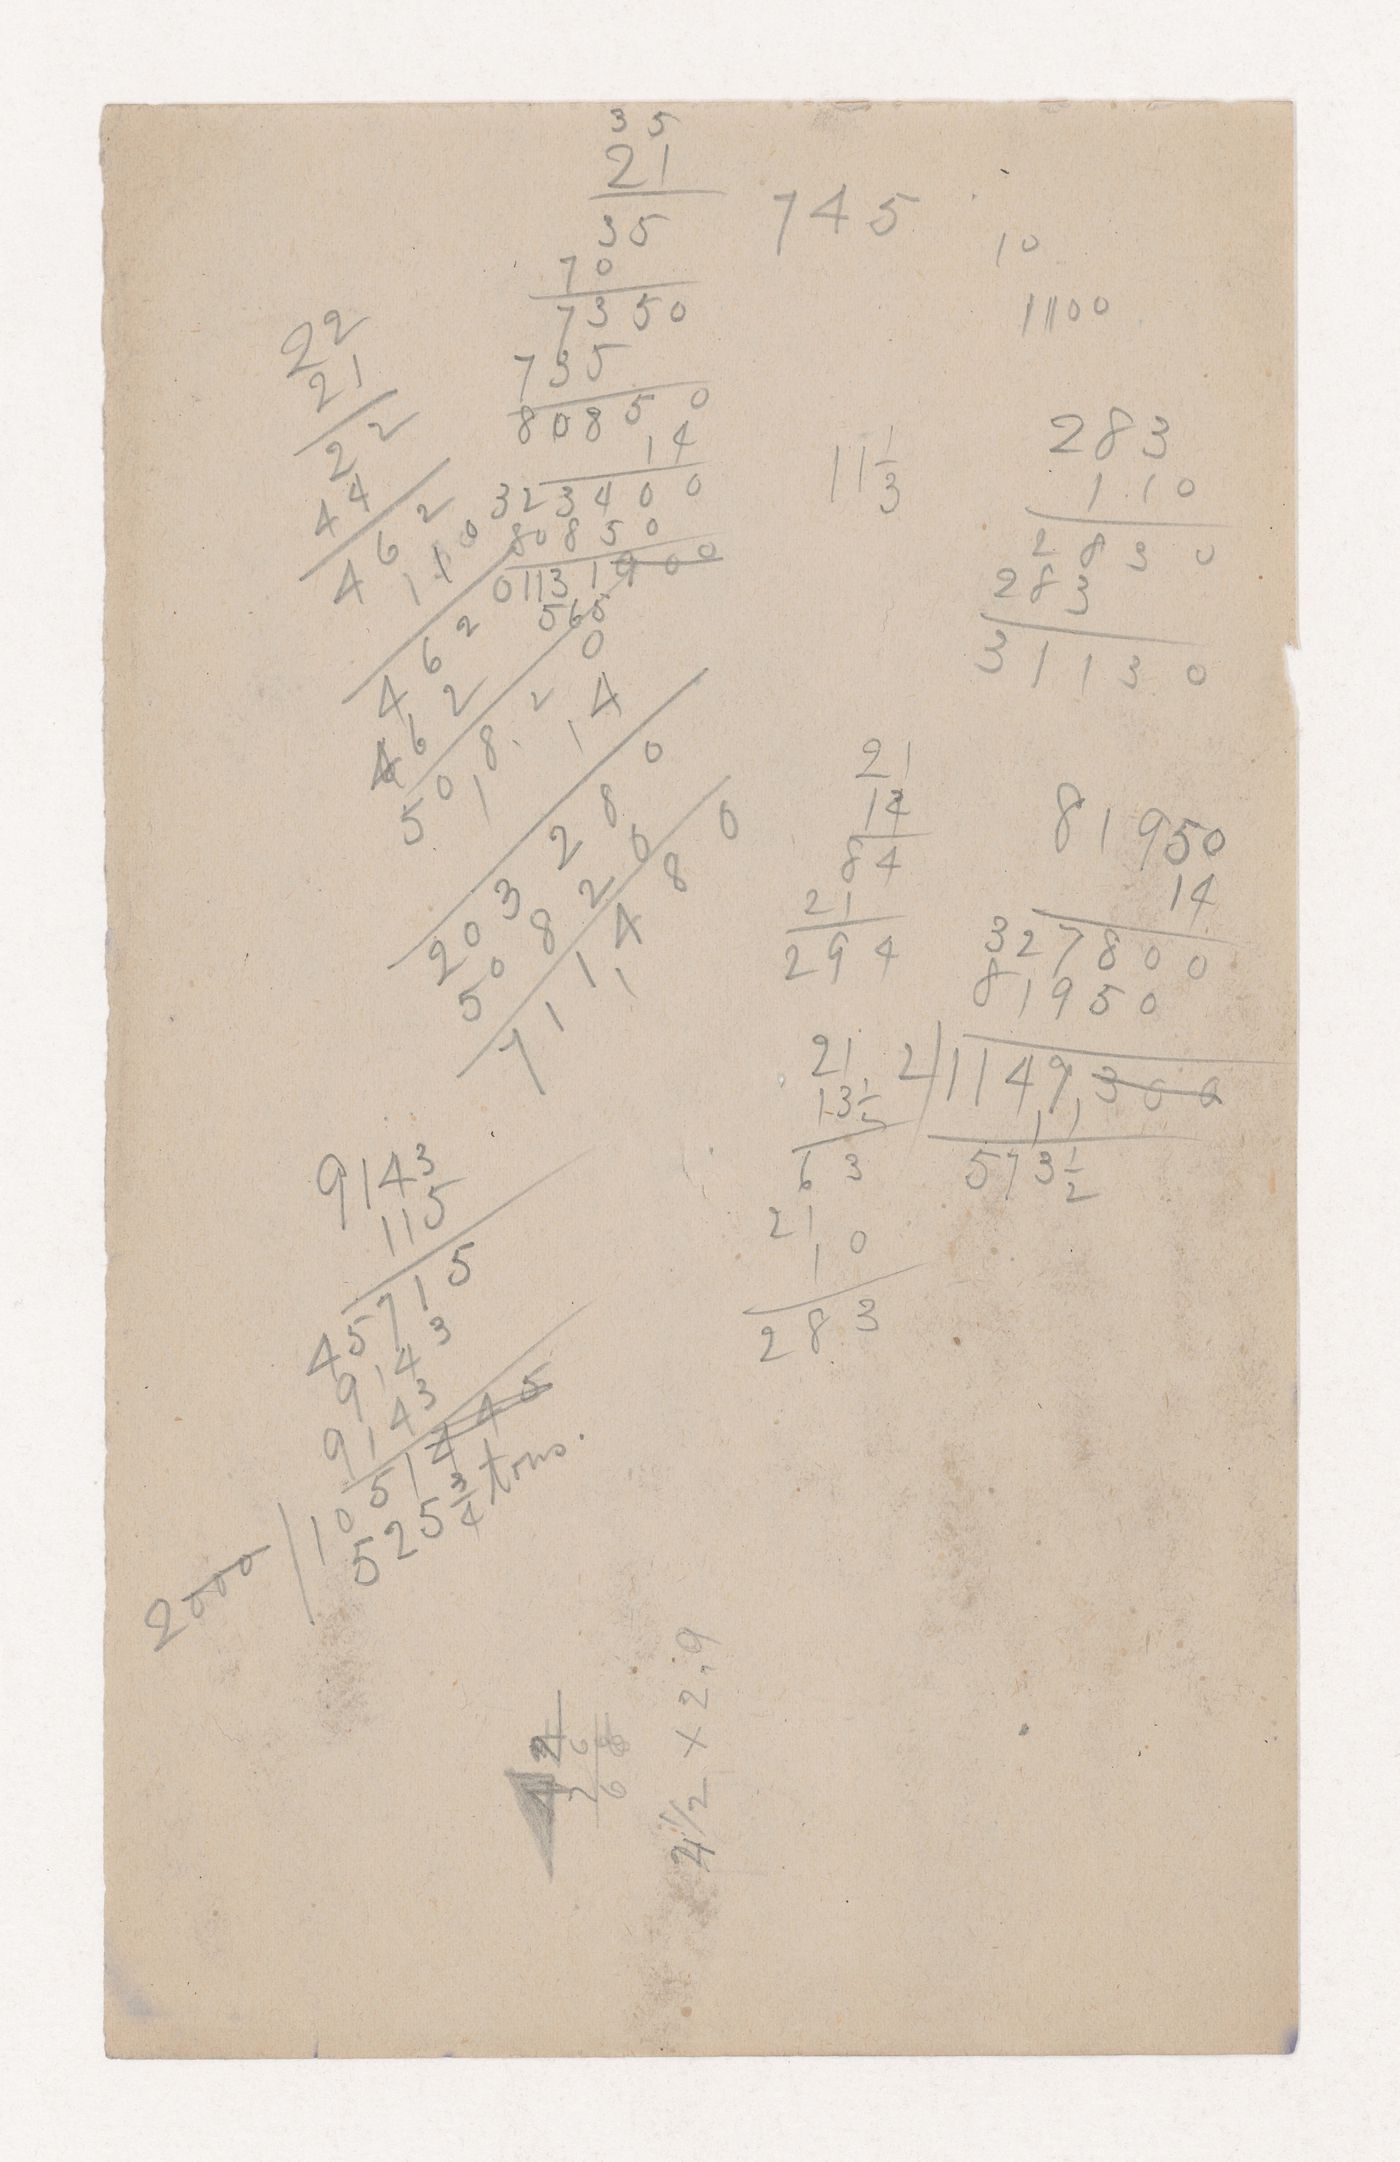 35
21
35
70
7350
735
80850
14
323400
80850
01131900
565
745
10
1100
22
21
22
44
462
110
462
462
50820
14
203280
50820
711480
11 1/3
283
110
2830
283
31130
21
14
84
21
294
81950
14
327800
81950
2/1149300
11
573 1/2
21
13 1/2
63
21
10
283
9143
115
45715
9143
9143
2000/1051445
525 3/4 tons.
4 1/2 × 2.9